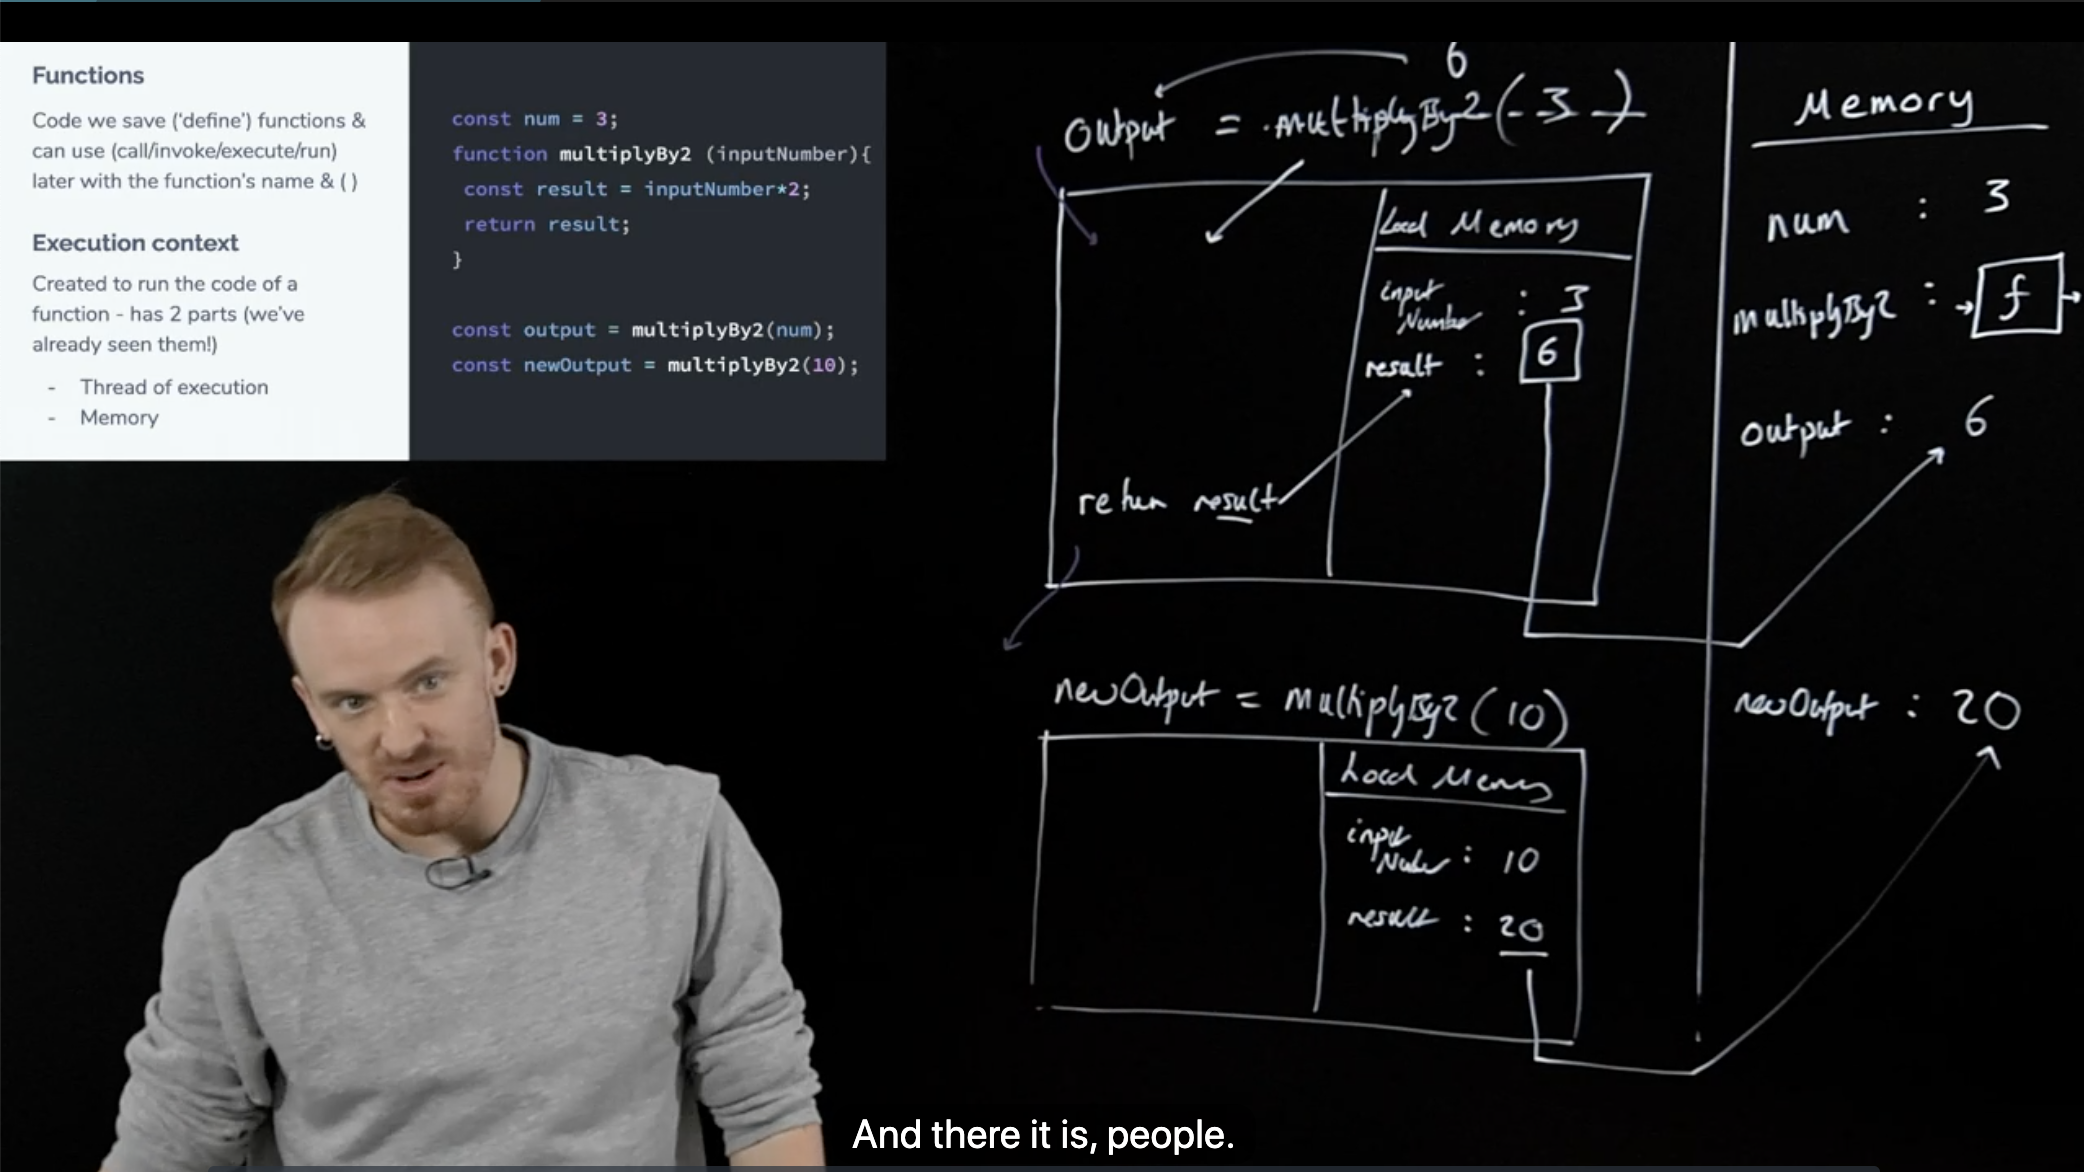 Functions
Code we save (‘define’) functions &
can use (call/invoke/execute/run)
later with the function's name & ( )
Execution context
Created to run the code of a
function - has 2 parts (we've
already seen them!)
- Thread of execution
- Memory
const num = 3;
function multiplyBy2 (inputNumber){
const result = inputNumber*2;
return result;
}
const output = multiplyBy2(num);
const newOutput = multiplyBy2(10);
6
Output = multiplyBy2( 3 )
Local Memory
input
Number : 3
result : 6
return result
newOutput = multiplyBy2 ( 10 )
Local Memory
input
Number : 10
result : 20
Memory
num : 3
multiplyBy2 : f
output : 6
newOutput : 20
And there it is, people.